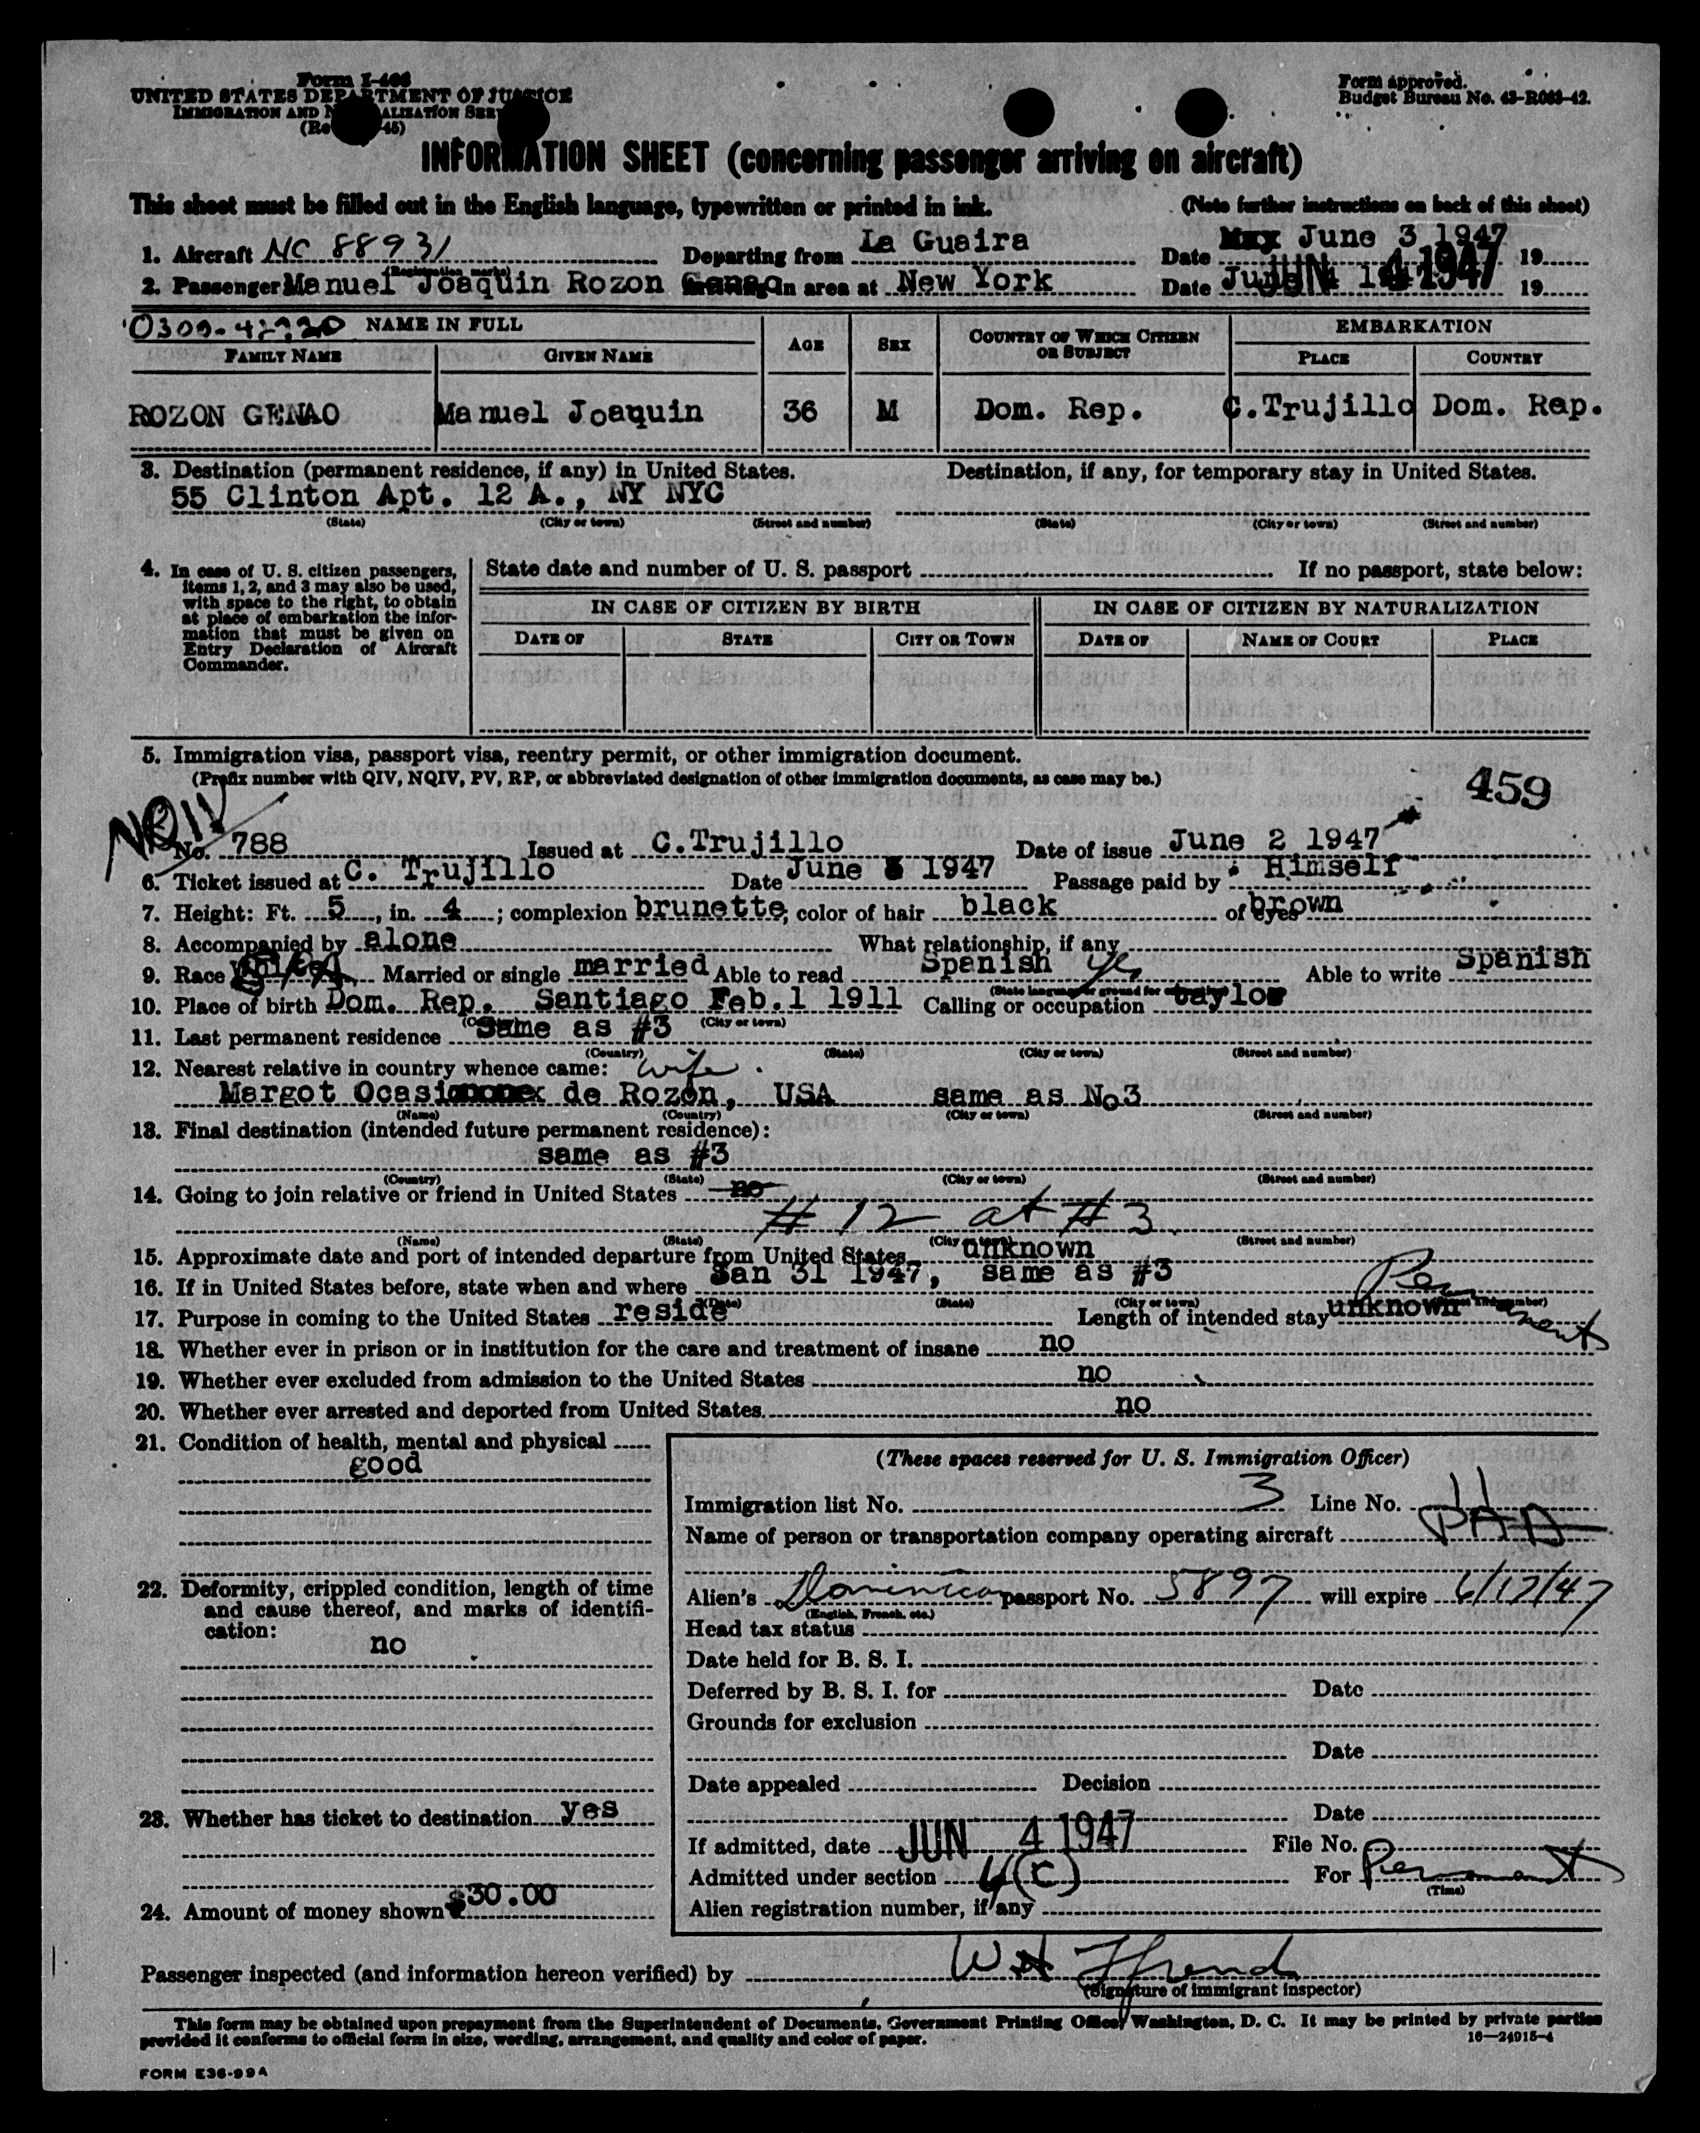 Form I-466
UNITED STATES DEPARTMENT OF JUSTICE
IMMIGRATION AND NATURALIZATION SER
(Re 45)
Form approved.
Budget Bureau No. 43-R063-42.
INFORMATION SHEET (concerning passenger arriving on aircraft)
This sheet must be filled out in the English language, typewritten or printed in ink. (Note further instructions on back of this sheet)
1. Aircraft NC 88931 Departing from La Guaira Date May June 3 1947 19
(Registration marks)
2. Passenger Manuel Joaquin Rozon Genao Arriving in area at New York Date June 4 1947 JUN 4 1947 19
NAME IN FULL AGE SEX COUNTRY OF WHICH CITIZEN OR SUBJECT EMBARKATION
FAMILY NAME GIVEN NAME PLACE COUNTRY
ROZON GENAO Manuel Joaquin 36 M Dom. Rep. C.Trujillo Dom. Rep.
3. Destination (permanent residence, if any) in United States. Destination, if any, for temporary stay in United States.
55 Clinton Apt. 12 A., NY NYC
(State) (City or town) (Street and number) (State) (City or town) (Street and number)
4. In case of U. S. citizen passengers, items 1, 2, and 3 may also be used, with space to the right, to obtain at place of embarkation the information that must be given on Entry Declaration of Aircraft Commander.
State date and number of U. S. passport If no passport, state below:
IN CASE OF CITIZEN BY BIRTH IN CASE OF CITIZEN BY NATURALIZATION
DATE OF STATE CITY OR TOWN DATE OF NAME OF COURT PLACE
5. Immigration visa, passport visa, reentry permit, or other immigration document.
(Prefix number with QIV, NQIV, PV, RP, or abbreviated designation of other immigration documents, as case may be.)
459
No. 788 Issued at C.Trujillo Date of issue June 2 1947
6. Ticket issued at C. Trujillo Date June 3 1947 Passage paid by Himself
7. Height: Ft. 5, in. 4; complexion brunette, color of hair black of eyes brown
8. Accompanied by alone What relationship, if any
9. Race Married or single married Able to read Spanish yes Able to write Spanish
10. Place of birth Dom. Rep. Santiago Feb.1 1911 Calling or occupation taylor
(City or town)
11. Last permanent residence Same as #3
(Country) (State) (City or town) (Street and number)
12. Nearest relative in country whence came: wife
Margot Ocasi de Rozon, USA same as No3
(Name) (Country) (City or town) (Street and number)
13. Final destination (intended future permanent residence):
same as #3
(Country) (State) (City or town) (Street and number)
14. Going to join relative or friend in United States no
# 12 at # 3
(Name) (State) (City or town) (Street and number)
15. Approximate date and port of intended departure from United States unknown
16. If in United States before, state when and where Jan 31 1947, same as #3
(Date) (State) (City or town) (Street and number)
17. Purpose in coming to the United States reside Length of intended stay unknown Permanent
18. Whether ever in prison or in institution for the care and treatment of insane no
19. Whether ever excluded from admission to the United States no
20. Whether ever arrested and deported from United States. no
21. Condition of health, mental and physical
good
(These spaces reserved for U. S. Immigration Officer)
Immigration list No. 3 Line No. 11
Name of person or transportation company operating aircraft PAA
22. Deformity, crippled condition, length of time and cause thereof, and marks of identification:
no
Alien's Dominican passport No. 5897 will expire 6/17/47
(English, French, etc.)
Head tax status
Date held for B. S. I.
Deferred by B. S. I. for Date
Grounds for exclusion
Date
Date appealed Decision
23. Whether has ticket to destination yes
Date
If admitted, date JUN 4 1947 File No.
Admitted under section 4(c) For Permanent
(Time)
24. Amount of money shown $30.00
Alien registration number, if any
Passenger inspected (and information hereon verified) by
(Signature of immigrant inspector)
This form may be obtained upon prepayment from the Superintendent of Documents, Government Printing Office, Washington, D. C. It may be printed by private parties
provided it conforms to official form in size, wording, arrangement, and quality and color of paper. 16—24915-4
FORM E36-99A